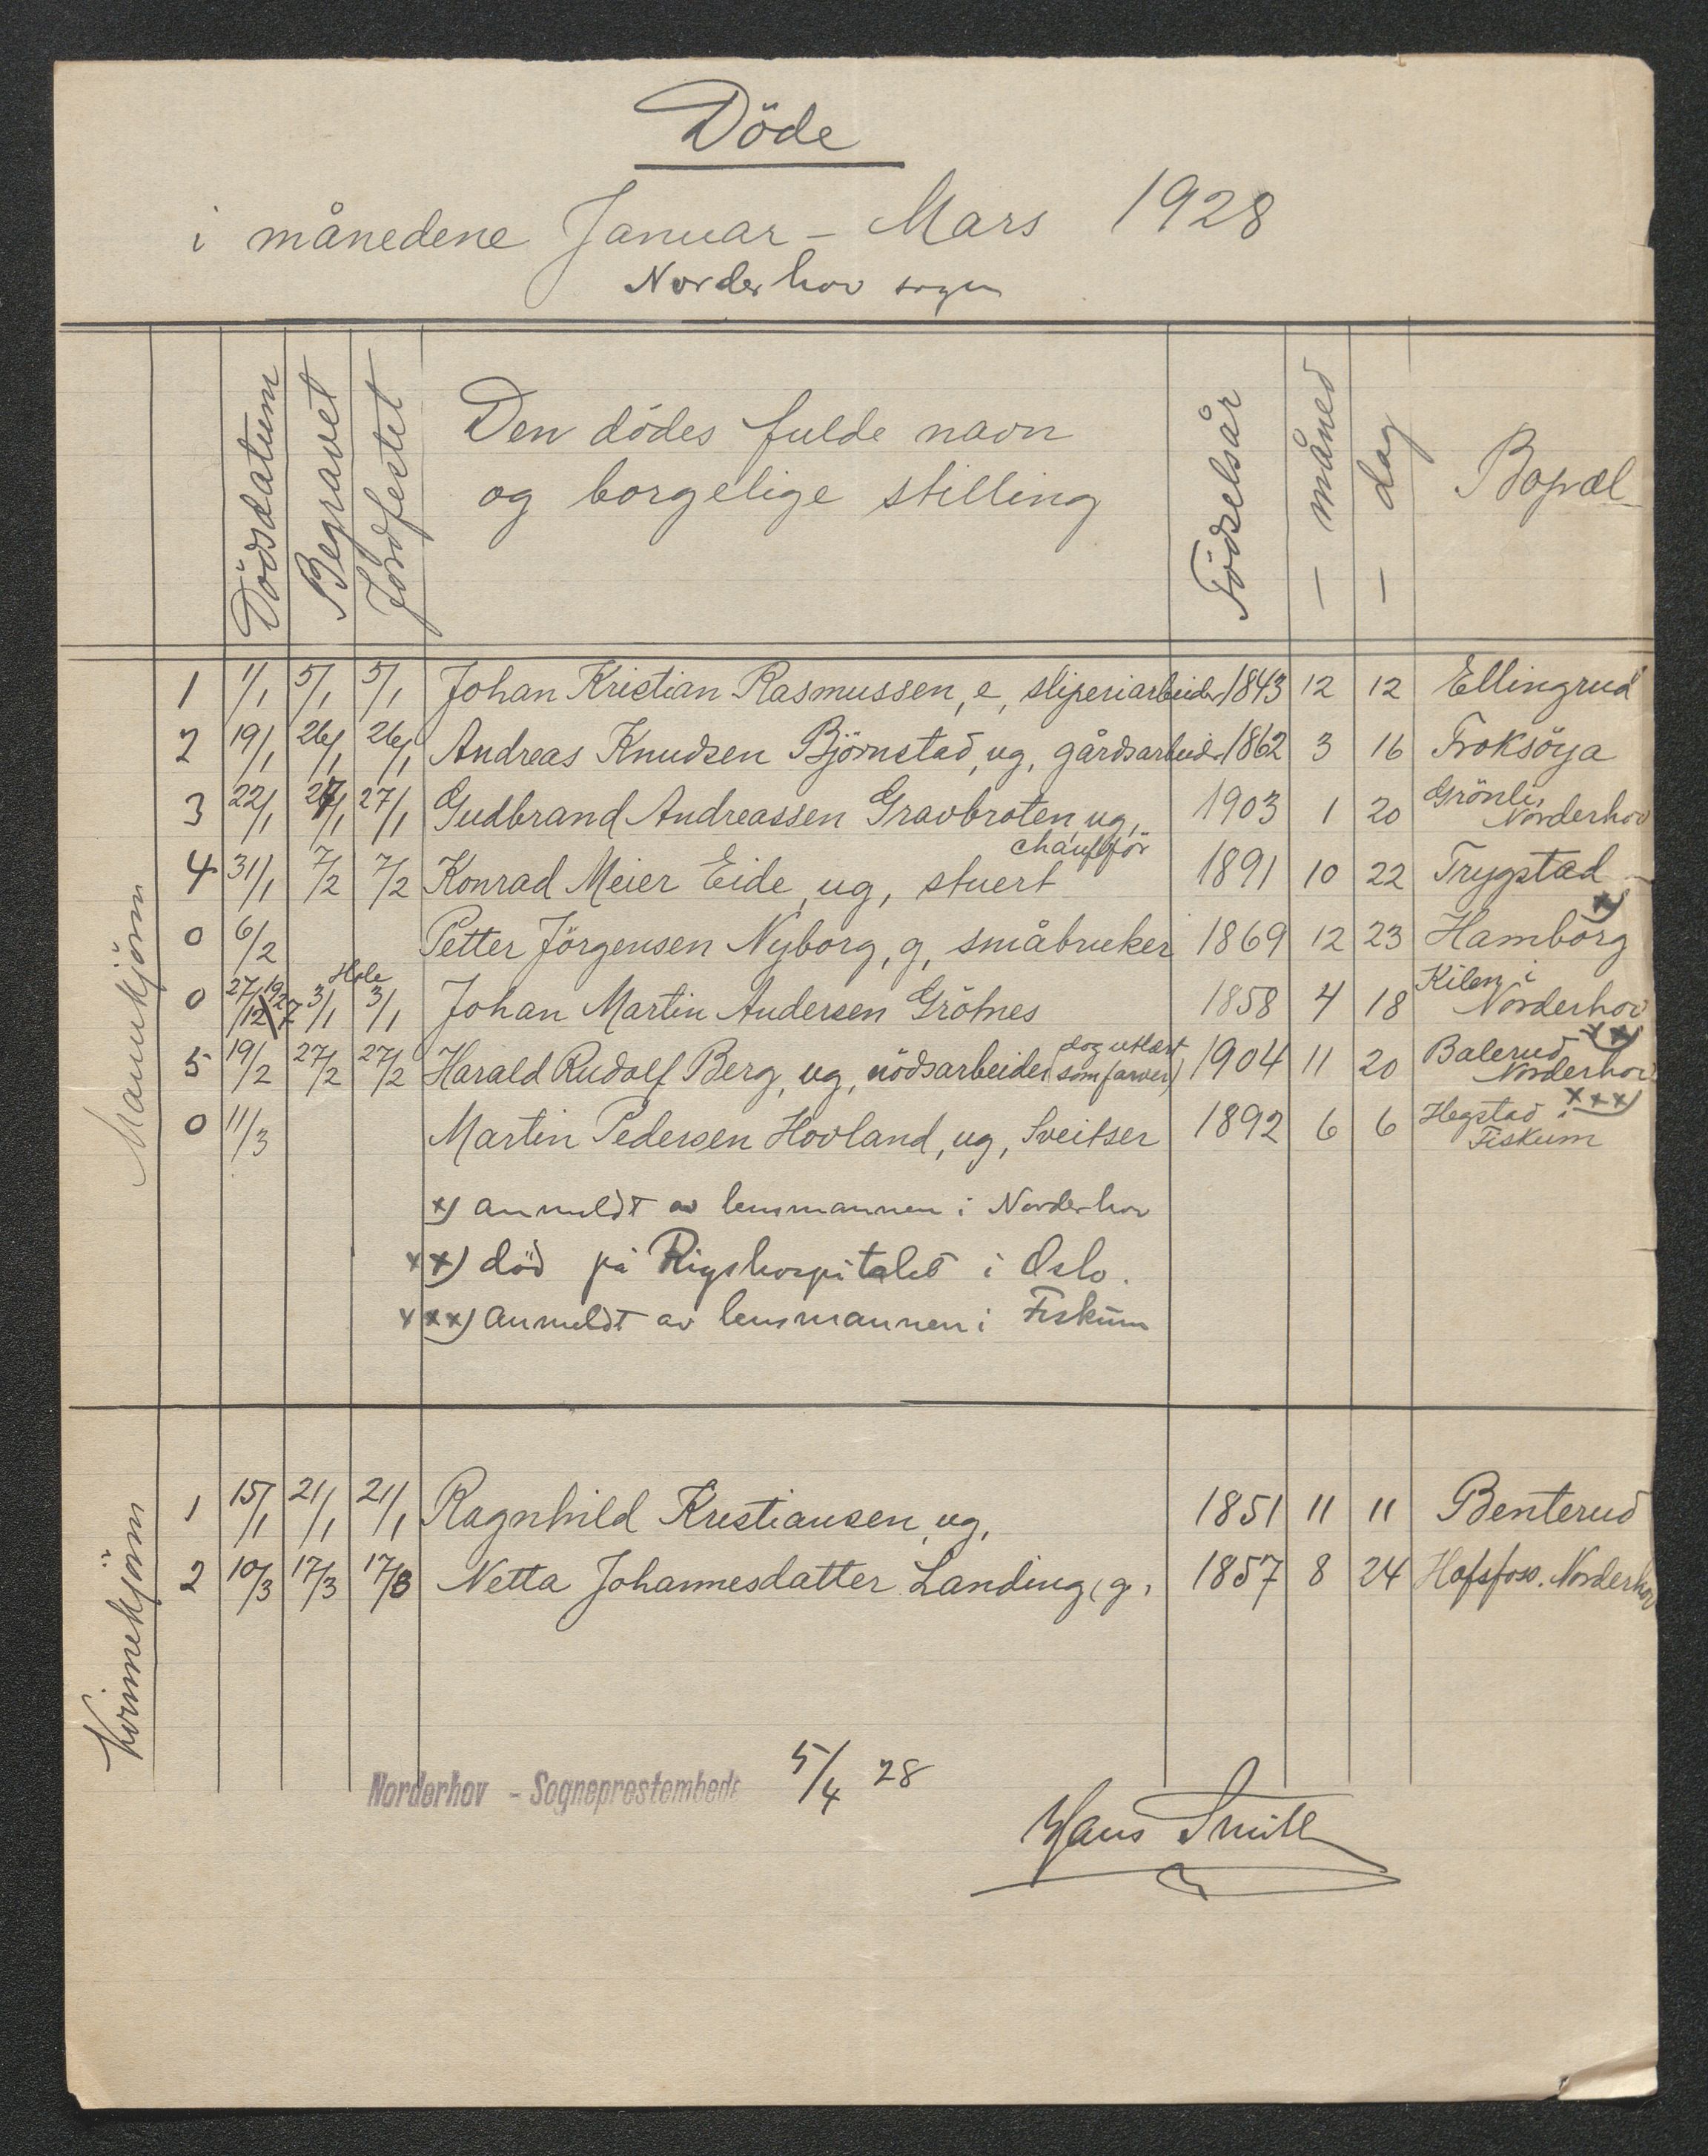 Döde
i månedene Januar - Mars 1928
Norderhov sogn
Dödsdatum Begravet Jordfestet Den dödes fulde navn og borgelige stilling Födselsår — måned — dag Bopæl
Mannkjönn
1 1/1 5/1 5/1 Johan Kristian Rasmussen, e, sliperiarbeider 1843 12 12 Ellingrud
2 19/1 26/1 26/1 Andreas Knudsen Björnstad, ug, gårdsarbeid. 1862 3 16 Froksöya
3 22/1 27/1 27/1 Gudbrand Andreassen Gravbroten, ug, chaufför 1903 1 20 Grönli, Norderhov
4 31/1 7/2 7/2 Konrad Meier Eide, ug, stuert 1891 10 22 Trygstad
0 6/2 Petter Jörgensen Nyborg, g, småbruker 1869 12 23 Hamborg x)
0 27/12 1927 3/1 Hole 3/1 Johan Martin Andersen Grötnes 1858 4 18 Kilen i Norderhov
5 19/2 27/2 27/2 Harald Rudolf Berg, ug, nödsarbeider (dog utlært som farver) 1904 11 20 Balerud Norderhov xx)
0 11/3 Martin Pedersen Hovland, ug, Sveitser 1892 6 6 Hegstad i Fiskum xxx)
x) anmeldt av lensmannen i Norderhov
xx) död på Rigshospitalet i Oslo.
xxx) anmeldt av lensmannen i Fiskum
Kvinnekjönn
1 15/1 21/1 21/1 Ragnhild Kristiansen, ug, 1851 11 11 Benterud
2 10/3 17/3 17/3 Netta Johannesdatter Landing, g, 1857 8 24 Hofsfoss. Norderhov
Norderhov - Sogneprestembede 5/4 28
Hans Smith